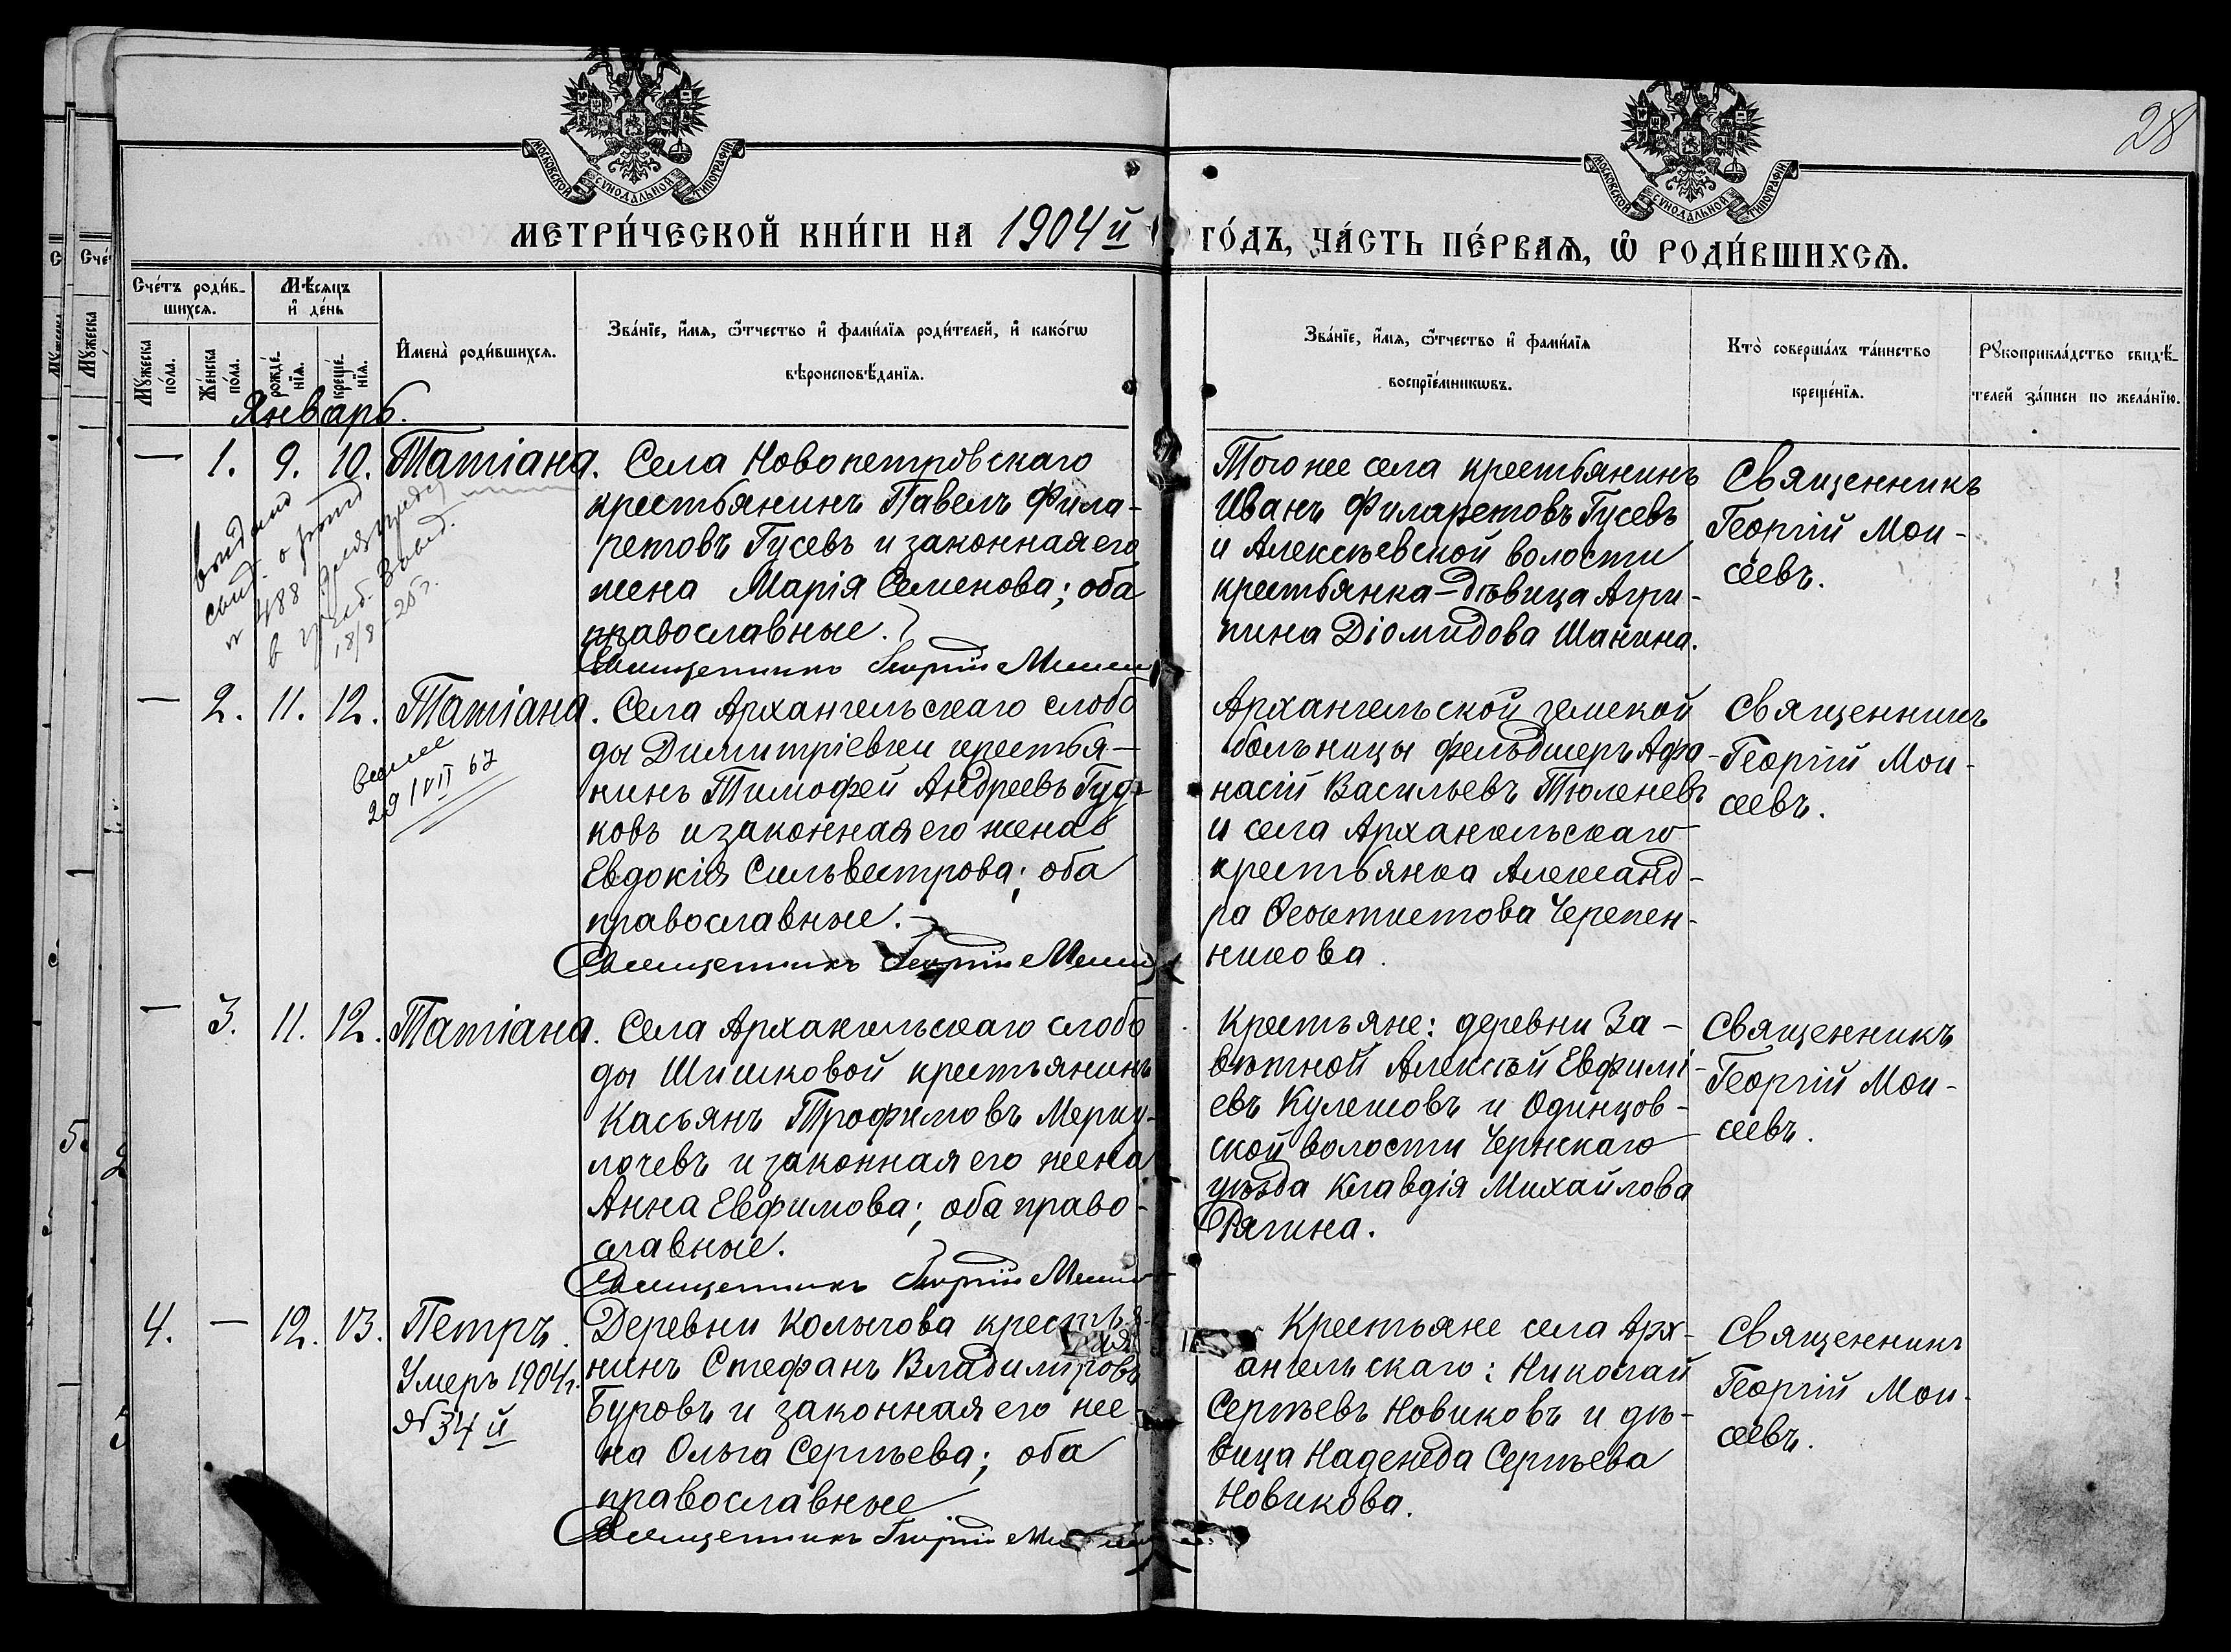 28
МОСКОВСКОЙ СѴНОДАЛЬНОЙ ТИПОГРАФІИ
МОСКОВСКОЙ СѴНОДАЛЬНОЙ ТИПОГРАФІИ
МЕТРИ́ЧЕСКОЙ КНИ́ГИ НА 1904 й ГО́ДЪ, ЧА́СТЬ ПЕ́РВАѦ, Ѡ҆ РОДИ́ВШИХСѦ.
Сче́тъ роди́в-
шихсѧ.
Мѣ́сѧцъ
и҆ де́нь
Мꙋ́жеска
по́ла.
Же́нска
по́ла.
рожде́-
нїѧ.
креще́-
нїѧ.
И҆мена̀ роди́вшихсѧ.
Зва́нїе, и҆́мѧ, ѻ҆́тчество и҆ фами́лїѧ роди́телей, и҆ како́гѡ
вѣроисповѣ́данїѧ.
Зва́нїе, и҆́мѧ, ѻ҆́тчество и҆ фами́лїѧ
воспрїе́мникѡвъ.
Кто̀ соверша́лъ та́инство
креще́нїѧ.
Рꙋкоприкла́дство свидѣ́-
телей за́писи по жела́нїю.
Январь.
— 1. 9. 10. Татіана.
Села Новопетровскаго
крестьянинъ Павелъ Фила-
ретовъ Гусевъ и законная его
жена Марія Семенова; оба
православные.
Священникъ Георгій
Того же села крестьянинъ
Иванъ Филаретовъ Гусевъ
и Алексѣевской волости
крестьянка-дѣвица Агри-
пина Діомидова Шанина.
Священникъ
Георгій Мои-
сеевъ.
выдано
свид. о рожд
№ 488 для
в
18/8-25 г.
— 2. 11. 12. Татіана.
29 IVII 67
Села Архангельскаго слобо
ды Димитріевки крестья-
нинъ Тимофей Андреевъ Гуд-
ковъ и законная его жена
Евдокія Сильвестрова; оба
православные.
Священникъ Георгій
Архангельской земской
больницы фельдшеръ Афа-
насій Васильевъ Тюленевъ
и села Архангельскаго
крестьянка Александ-
ра Ѳеоктистова Черепен-
никова.
Священникъ
Георгій Мои-
сеевъ.
— 3. 11. 12. Татіана.
Села Архангельскаго слобо
ды Шишковой крестьянинъ
Касьянъ Трофимовъ Мерку-
лочевъ и законная его жена
Анна Евфимова; оба право-
славные.
Священникъ Георгій
Крестьяне: деревни За-
вѣтной Алексѣй Евфимі-
евъ Кулешовъ и Одинцов-
ской волости Чернскаго
уѣзда Клавдія Михайлова
Рягина.
Священникъ
Георгій Мои-
сеевъ.
4. — 12. 13. Петръ.
Умеръ 1904 г.
№ 34 й
Деревни Колычова крестья-
нинъ Стефанъ Владиміровъ
Буровъ и законная его же-
на Ольга Сергѣева; оба
православные
Священникъ Георгій
Крестьяне села Арх-
ангельскаго: Николай
Сергѣевъ Новиковъ и дѣ-
вица Надежда Сергѣева
Новикова.
Священникъ
Георгій Мои-
сеевъ.